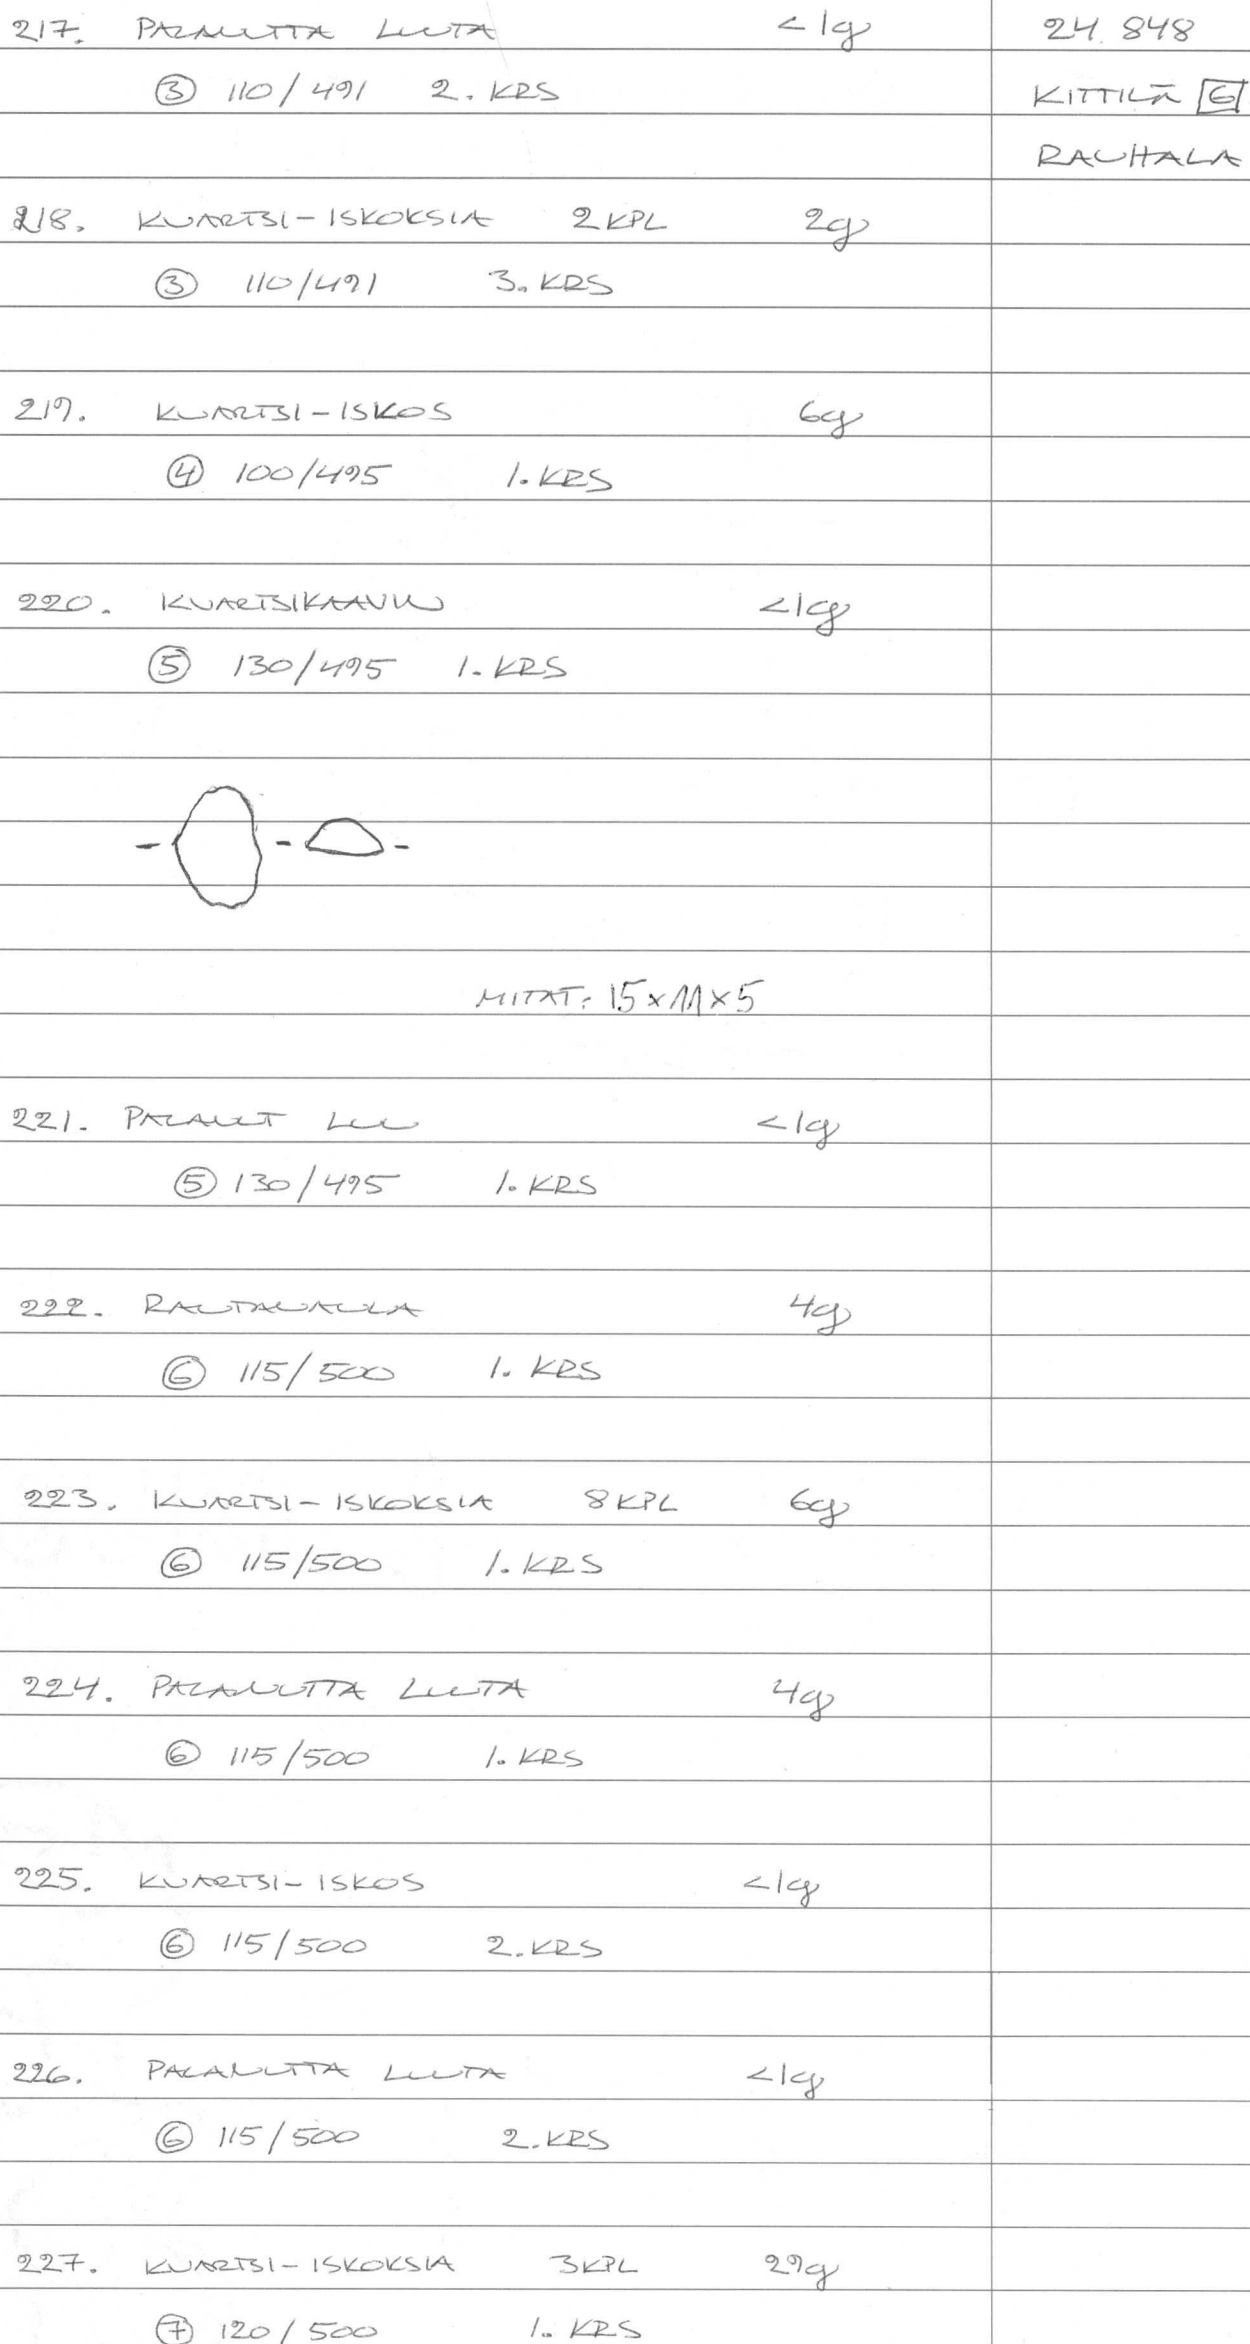 217. PALANUTTA LUUTA <1g 24 848
③ 110/491 2. KRS KITTILÄ 6
RAUHALA
218. KVARTSI-ISKOKSIA 2 KPL 2g
③ 110/491 3. KRS
219. KVARTSI-ISKOS 6g
④ 100/495 1. KRS
220. KVARTSIKAAVIN <1g
⑤ 130/495 1. KRS
MITAT: 15×11×5
221. PALANUT LUU <1g
⑤ 130/495 1. KRS
222. 4g
⑥ 115/500 1. KRS
223. KVARTSI-ISKOKSIA 8 KPL 6g
⑥ 115/500 1. KRS
224. PALANUTTA LUUTA 4g
⑥ 115/500 1. KRS
225. KVARTSI-ISKOS <1g
⑥ 115/500 2. KRS
226. PALANUTTA LUUTA <1g
⑥ 115/500 2. KRS
227. KVARTSI-ISKOKSIA 3 KPL 29g
⑦ 120/500 1. KRS